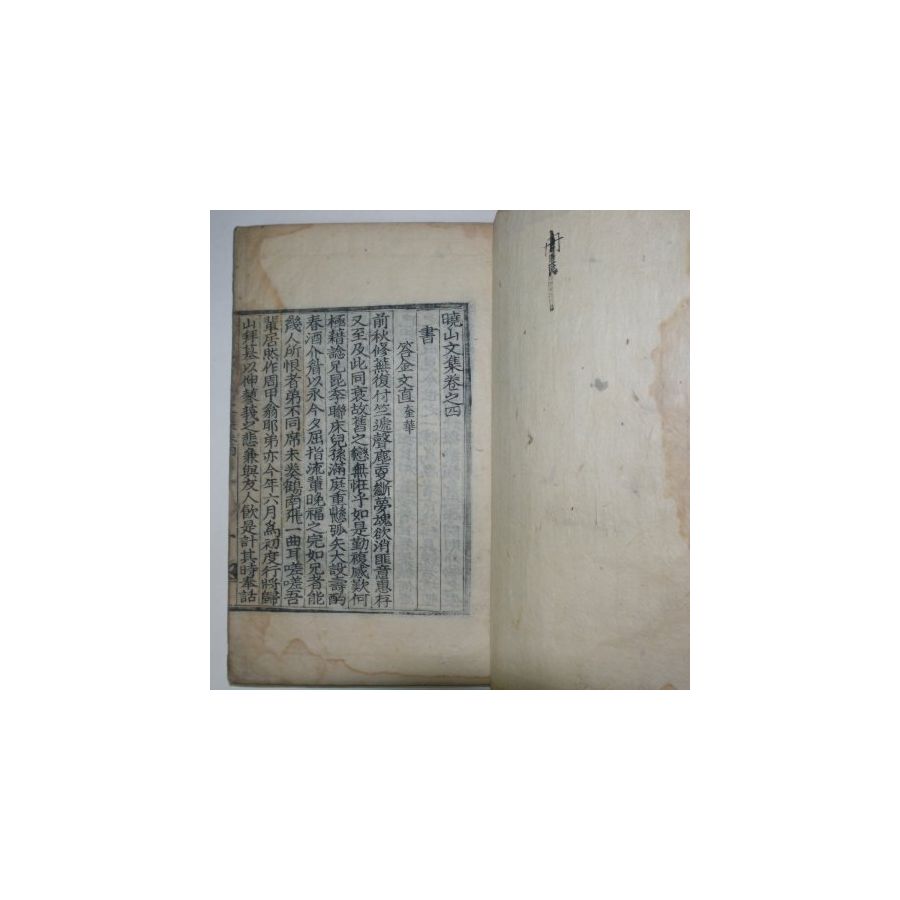 曉山文集卷之四
書
答金文直 奎華
前秋修蕪復付竺遞聲塵夐斷夢魂欲消匪意惠存
又至及此同衰故舊之戀無誑乎如是勤複感歎何
極藉諗兄昆季聯床兒孫滿庭重懸弧矢大設壽酌
春酒介眉以永今夕屈指流輩晚福之完如兄者能
幾人所恨者弟不同席未奏鶴南飛一曲耳嗟嗟吾
輩居然作周甲翁耶弟亦今年六月為初度行將歸
山拜墓以伸蓼莪之悲兼與友人飮是計其時奉詁